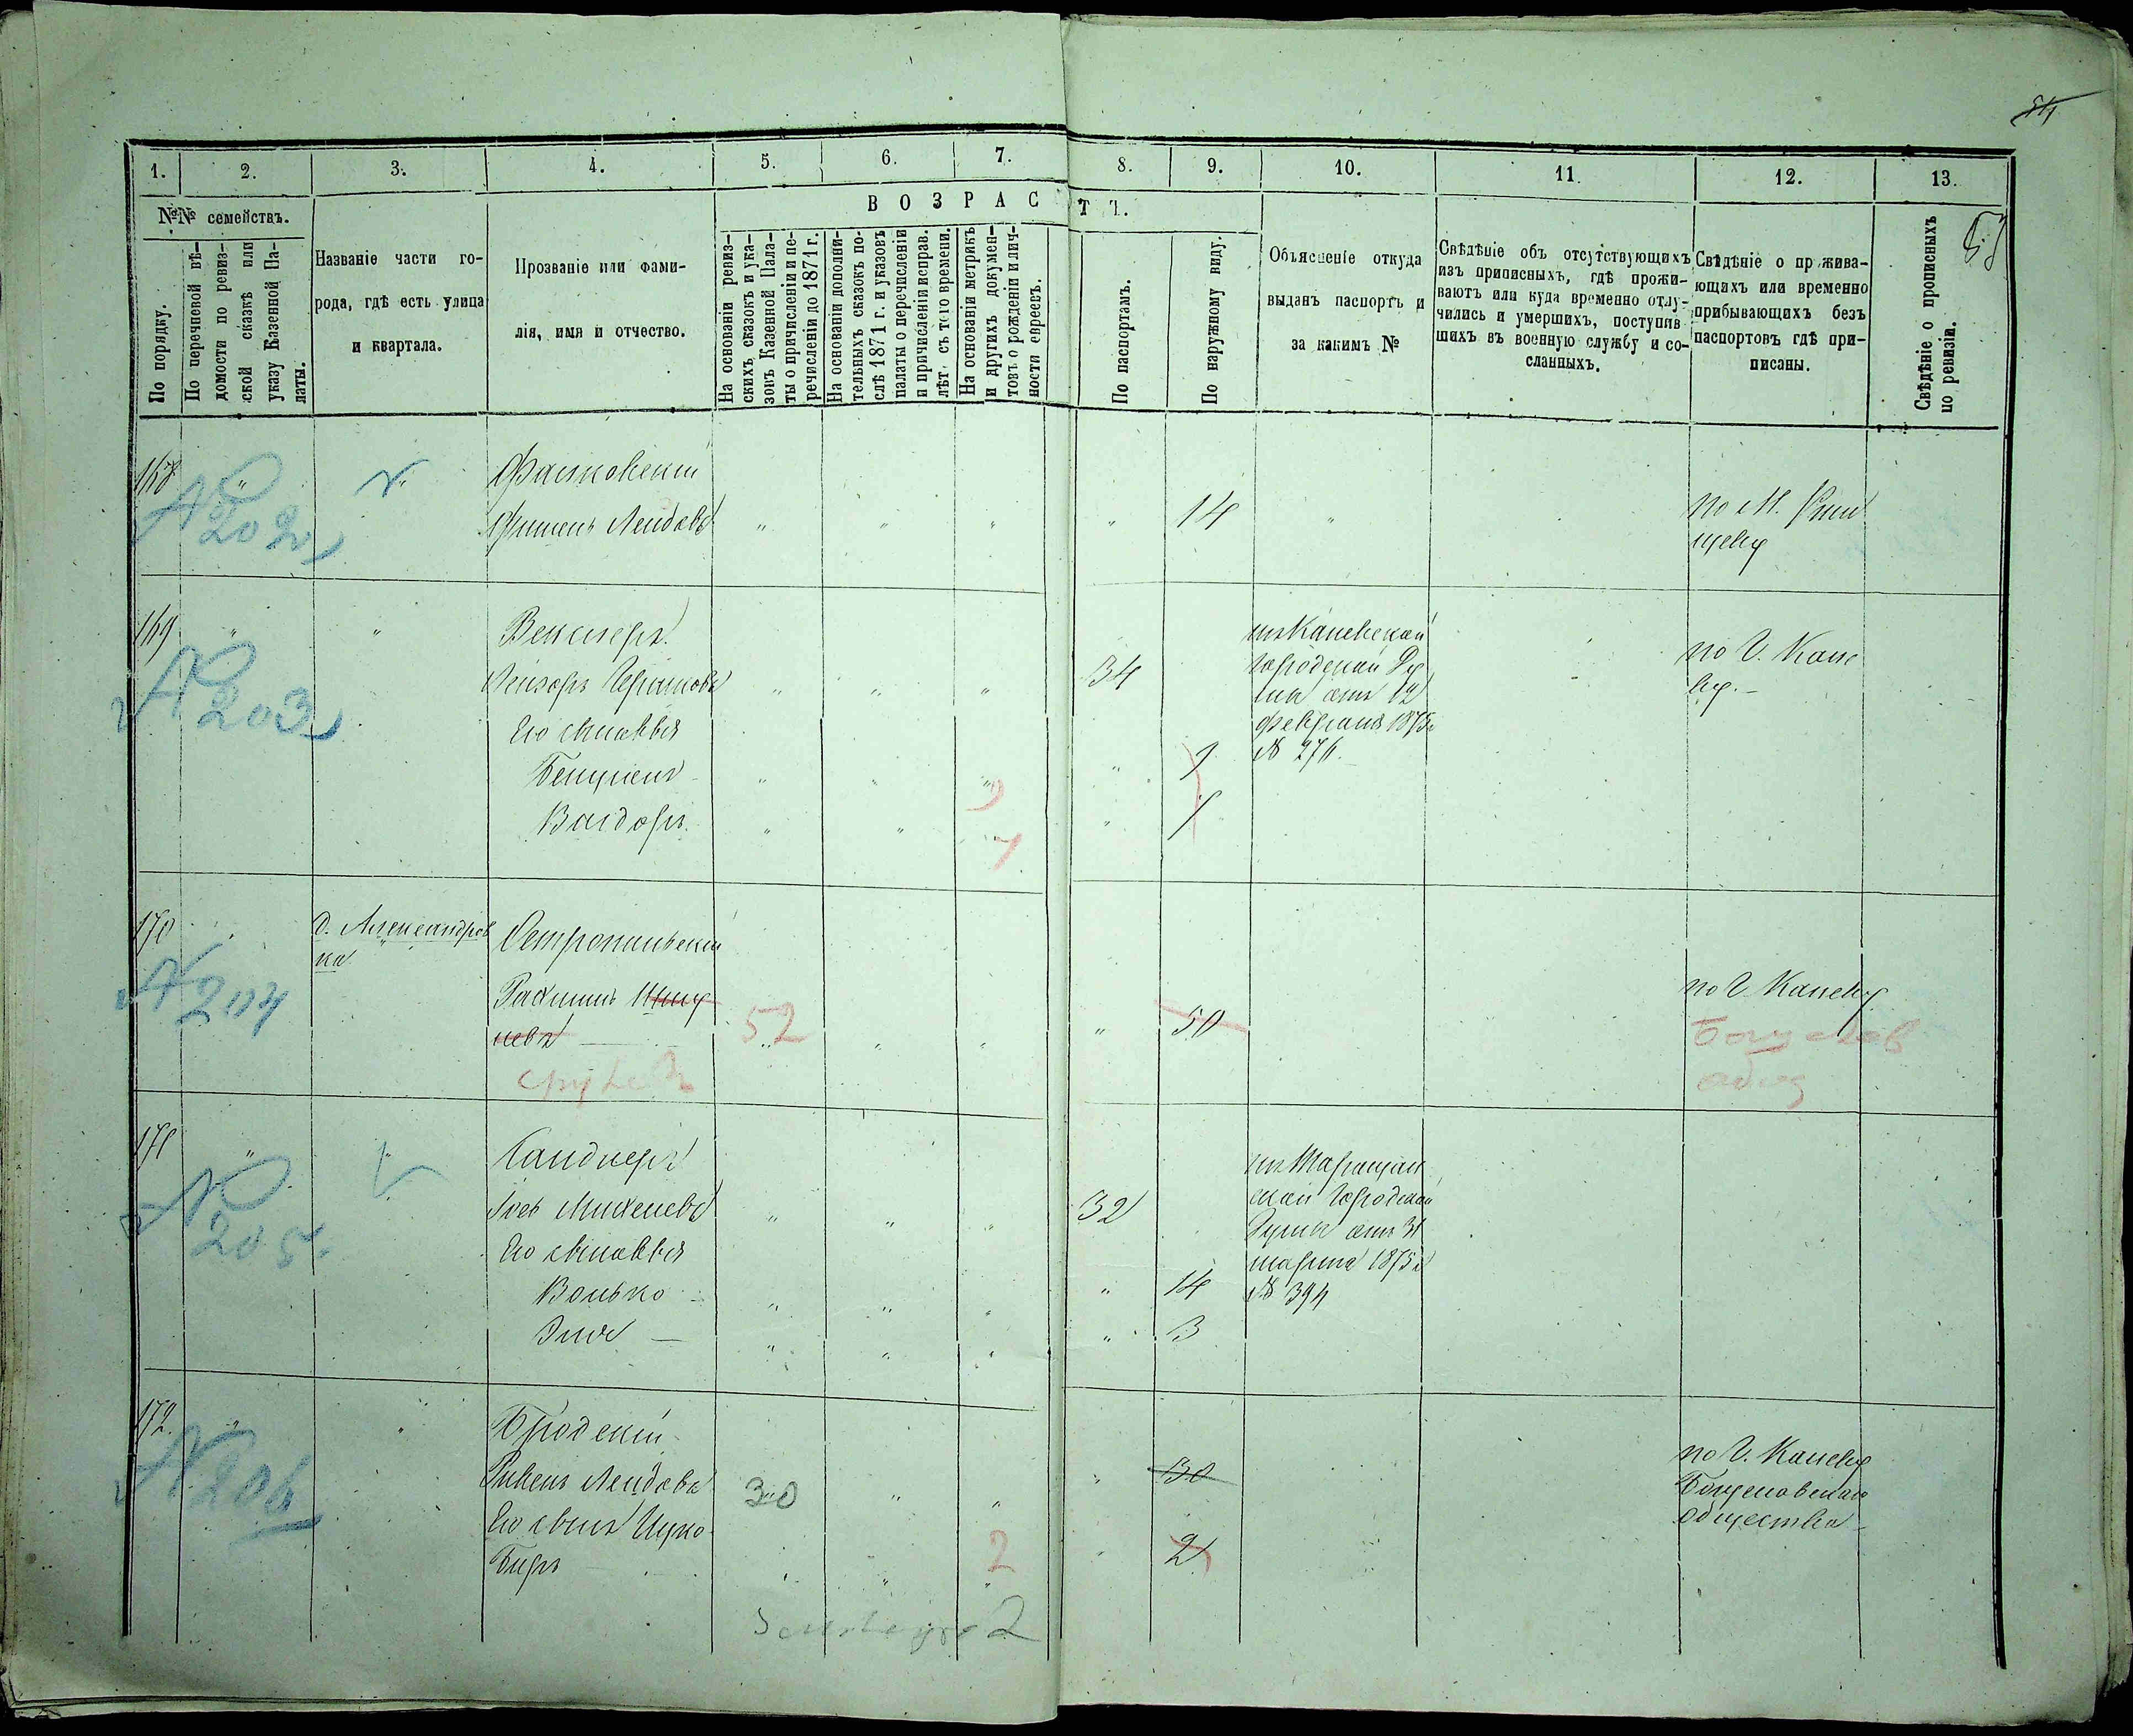 54
1.
2.
3.
4.
5.
6.
7.
8.
9.
10.
11.
12.
13.
№№ семействъ.
В О З Р А С Т Ъ.
По порядку.
По перечневой вѣ-
домости по ревиз-
ской сказкѣ или
указу Казенной Па-
латы.
Названіе части го-
рода, гдѣ есть улица
и квартала.
Прозваніе или фами-
лія, имя и отчество.
На основаніи ревиз-
скихъ сказокъ и ука-
зовъ Казенной Пала-
ты о причисленіи и пе-
речисленіи до 1871 г.
На основаніи дополни-
тельныхъ сказокъ по-
слѣ 1871 г. и указовъ
палаты о перечисленіи
и причисленіи исправ.
лѣт. съ того времени.
На основаніи метрикъ
и другихъ докумен-
товъ о рожденіи и лич-
ности евреевъ.
По паспортамъ.
По наружному виду.
Объясненіе откуда
выданъ паспортъ и
за какимъ №
Свѣдѣніе объ отсутствующихъ
изъ приписныхъ, гдѣ прожи-
ваютъ или куда временно отлу-
чились и умершихъ, поступив
шихъ въ военную службу и со-
сланныхъ.
Свѣдѣніе о прожива-
ющихъ или временно
прибывающихъ безъ
паспортовъ гдѣ при-
писаны.
Свѣдѣніе о прописныхъ
по ревизіи.
53
168
№ 202
Фальковскій
Фишель Лейбовъ
14
по М. Ржи
щеву
169
№ 203
Векслеръ
Лейзоръ Гершковъ
34
изъ Каневской
Городской Ду
мы отъ 12
февраля 1875 г
№ 276.
по Г. Кане
ву.
Его сыновья
9
Вигдоръ
7
9
7
170
№ 204
д. Александров
ка
Остропольскій
Рахмиль
52
Срулевъ
50
по Г. Каневу
Богуслов
общ
171
№ 205
Сандлеръ
Іось Михелевъ
32
изъ Таращан
ской Городской
Думы отъ 31
марта 1875 г
№ 394
Его сыновья
Волько
14
Эля
3
172.
№ 206
Бродскій
Рувенъ Лейбовъ
30
30
по Г. Каневу
Богуславскаго
общества
Его сынъ Ицко
Беръ
2
2
2